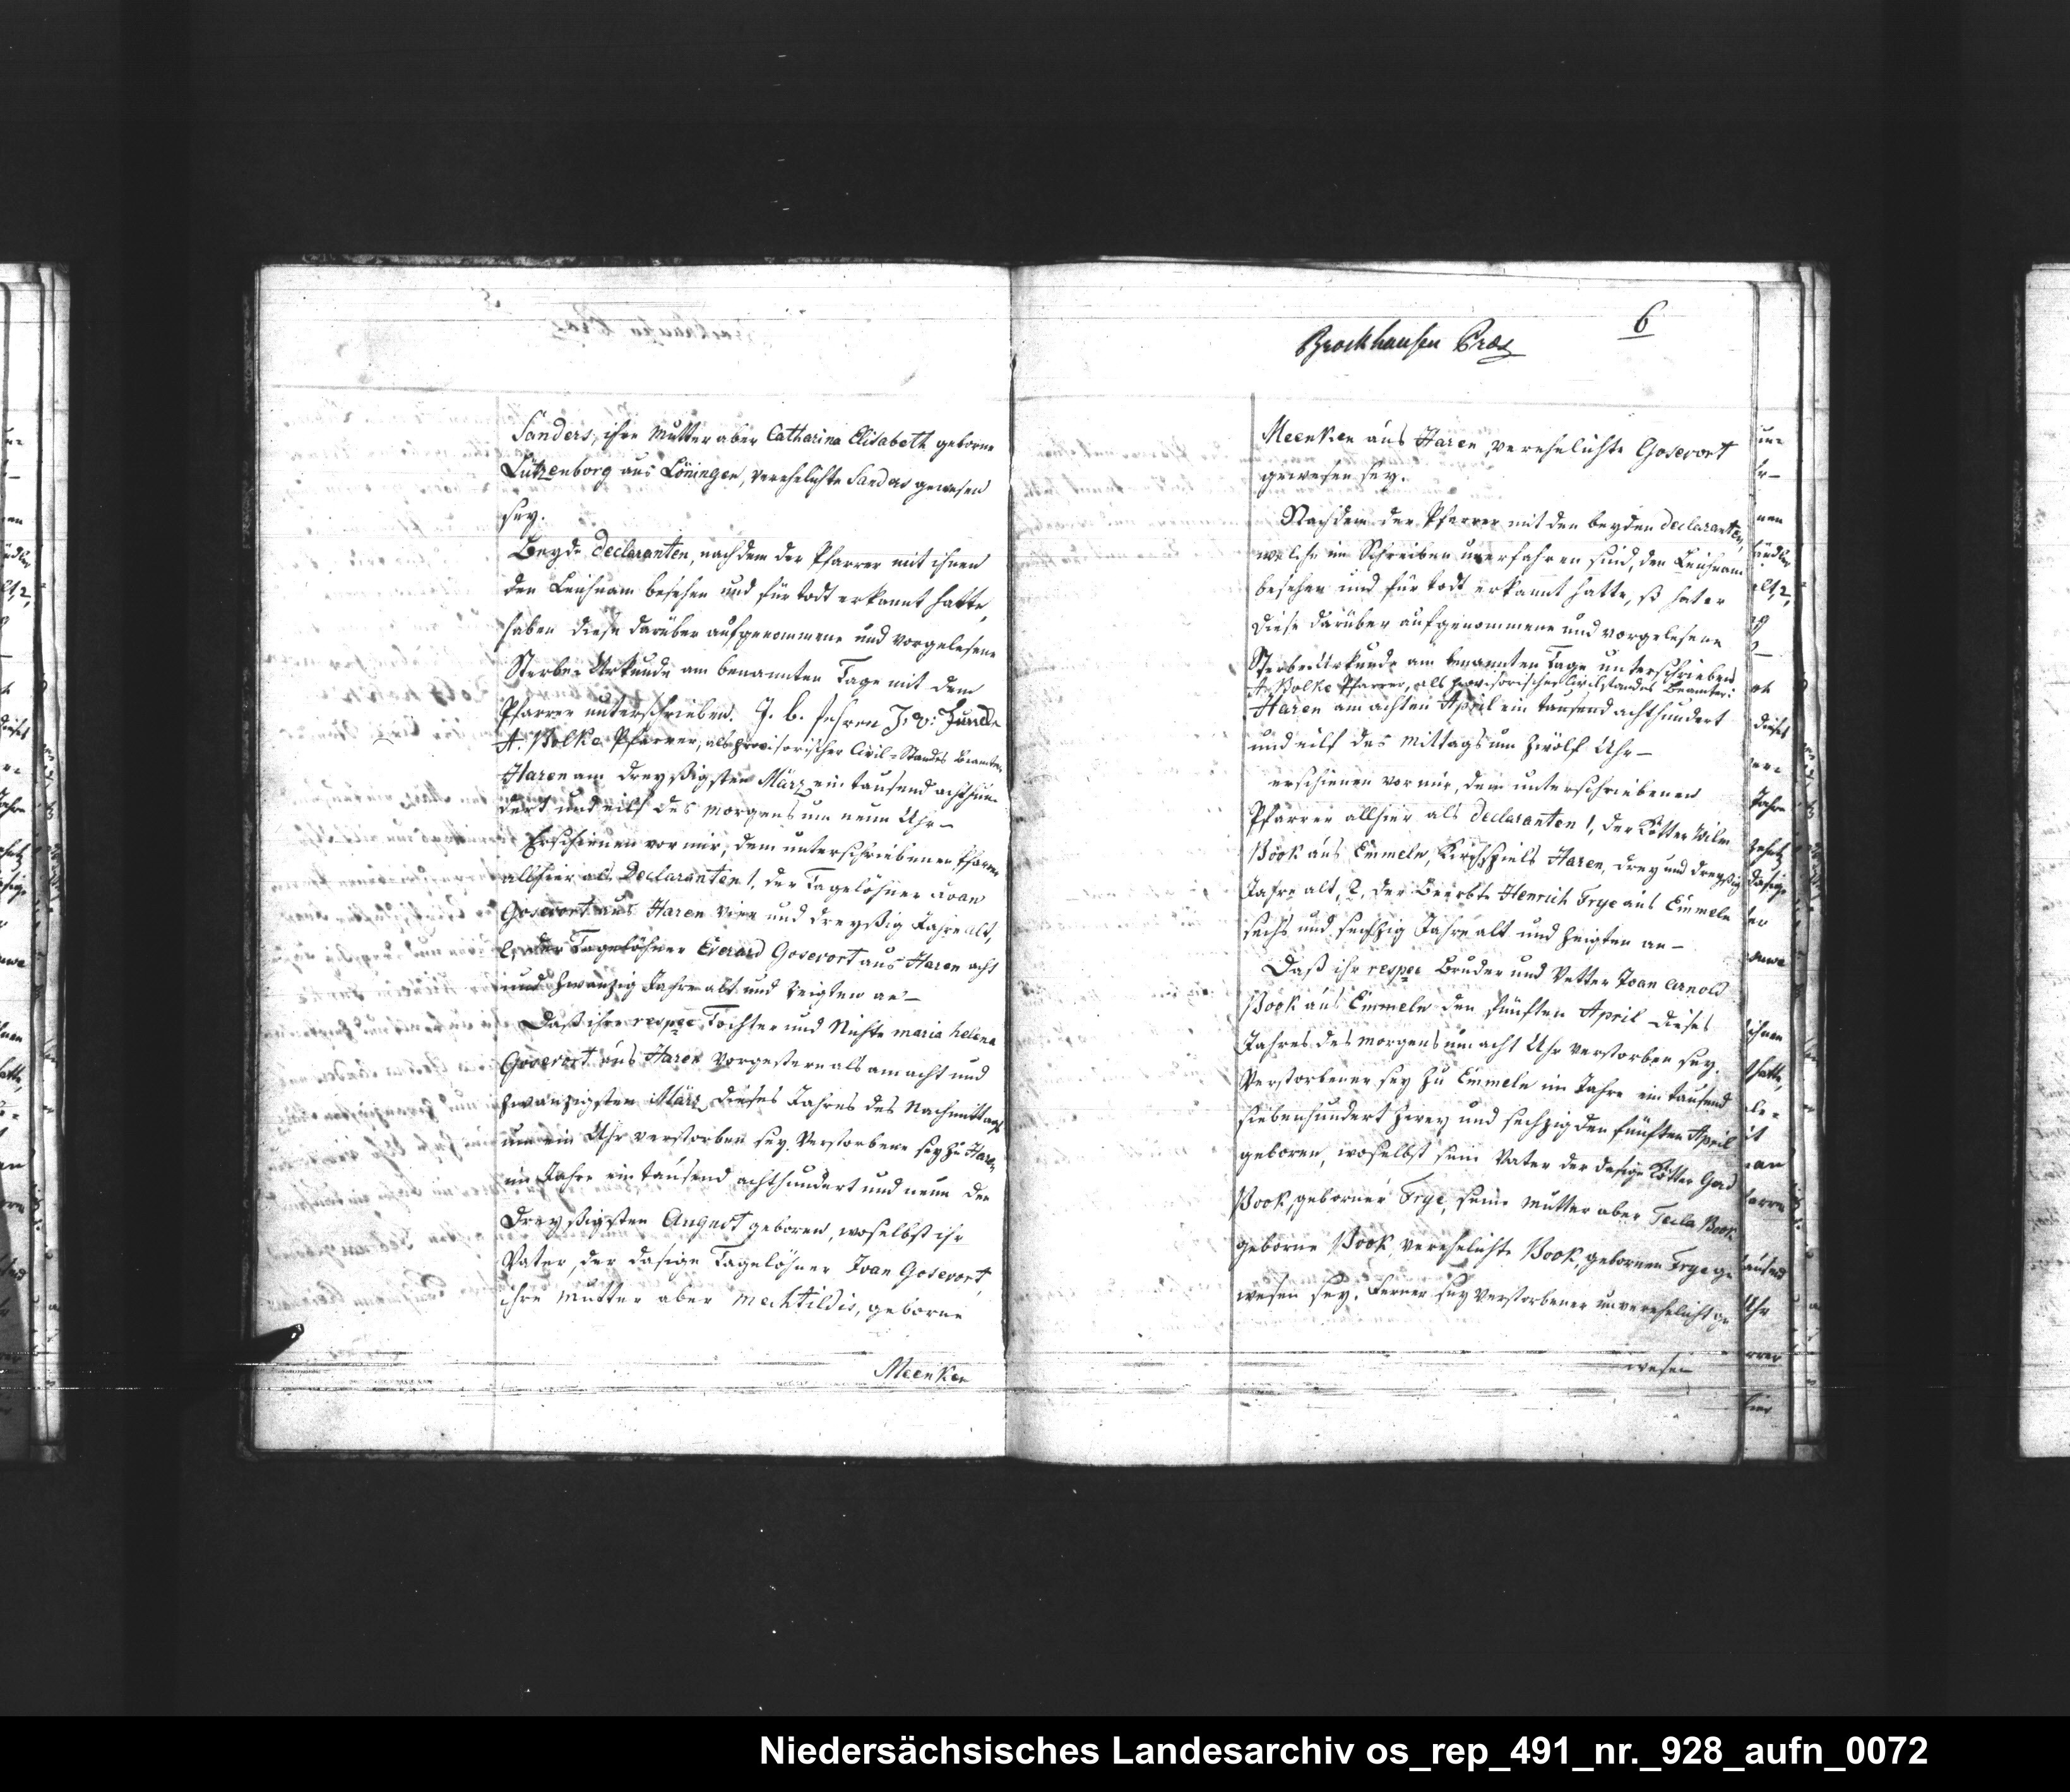 Sanders, ihre Mutter aber Catharina Elisabeth geborne
Lützenborg aus Löningen, verehelichte Sanders gewesen
sey.
Beyde Declaranten, nachdem der Pfarrer mit ihnen
den Leichnam besehen und für todt erkannt hatte,
haben diese darüber aufgenommene und vorgelesene
Sterbe-Urkunde am benannten Tage mit dem
Pfarrer unterschrieben. J. b.
A. Bolke Pfarrer, als provisorischer Civil-Standes Beamter
Haren am dreyßigsten März ein tausend achthun-
dert und eilf des morgens um neun Uhr –
Erschienen vor mir, dem unterschriebenen Pfarrer
allhier als Declaranten 1, der Tagelöhner Joan
Gosevort aus Haren vier und dreyßig Jahre alt,
2, der Tagelöhner Everard Gosevort aus Haren acht
und zwanzig Jahre alt und zeigten an –
Daß ihre respec Tochter und Nichte maria helena
Gosevort aus Haren vorgestern als am acht und
zwanzigsten März dieses Jahres des Nachmittags
um ein Uhr verstorben sey. Verstorbene sey zu Haren
im Jahre ein tausend achthundert und neun den
dreyßigsten August geboren, woselbst ihr
Vater, der dasige Tagelöhner Joan Gosevort,
ihre Mutter aber Mechtildis, geborne
Meenken
6
Brockhausen Præs
Meenken aus Haren, verehelichte Gosevort
gewesen sey.
Nachdem der Pfarrer mit den beyden Declaranten,
welche im Schreiben unerfahren sind, den Leichnam
besehen und für todt erkannt hatte, so hat er
diese darüber aufgenommene und vorgelesene
Sterbe-Urkunde am benannten Tage unterschrieben
A. Bolke Pfarrer, als provisorischer Civilstandes Beamter.
Haren am achten April ein tausend achthundert
und eilf des Mittags um zwölf Uhr –
erschienen vor mir, dem unterschriebenen
Pfarrer allhier als Declaranten 1, der Kötter Wilm
Book aus Emmeln, Kirchspiels Haren, drey und dreyßig
Jahre alt, 2, der Beerbte Henrich Frye aus Emmeln
sechs und sechzig Jahre alt und zeigten an –
Daß ihr respec Bruder und Vetter Joan Arnold
Book aus Emmeln den fünften April dieses
Jahres des morgens um acht Uhr verstorben sey.
Verstorbener sey zu Emmeln im Jahre ein tausend
siebenhundert zwey und sechzig den fünften April
geboren, woselbst sein Vater der dasige Kötter Gerd
Book, geborner Frye, seine Mutter aber Tecla Book
geborne Book, verehelichte Book, gebornen Frye ge
wesen sey. Ferner sey Verstorbener unverehelicht ge
wesen
Niedersächsisches Landesarchiv os_rep_491_nr._928_aufn_0072